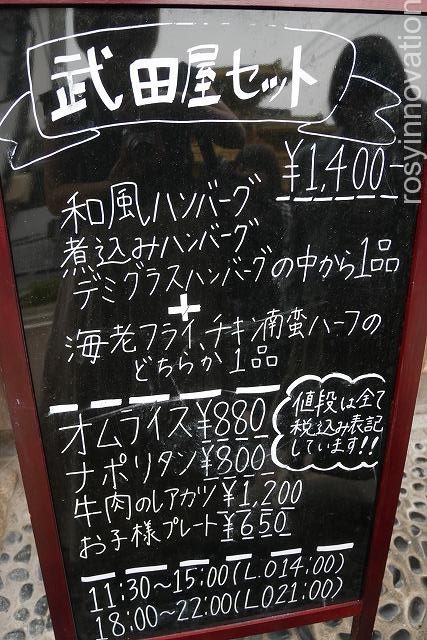 武田屋セット
¥1,400-
和風ハンバーグ
煮込みハンバーグ
デミグラスハンバーグの中から1品
+
海老フライ、チキン南蛮ハーフの
どちらか1品
値段は全て
税込み表記
しています!!
オムライス ¥880
ナポリタン ¥800
牛肉のレアカツ ¥1,200
お子様プレート ¥650
11:30~15:00(L.O14:00)
18:00~22:00(LO21:00)
rosyinnovation